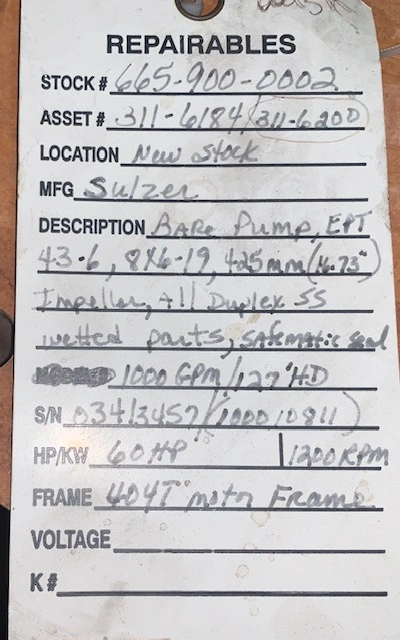 REPAIRABLES
STOCK # 665-900-0002
ASSET # 311-6184 (311-6200)
LOCATION New Stock
MFG Sulzer
DESCRIPTION BARe Pump, EPT
43-6, 8X6-19, 425mm (16.73")
Impeller, All Duplex SS
wetted parts, Safematic seal
1000 GPM/127'HD
S/N 03413457 (100010811)
HP/KW 60HP 1200RPM
FRAME 404T motor Frame
VOLTAGE
K#